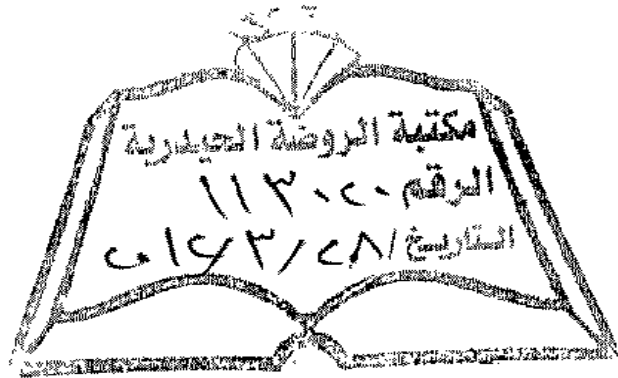 مكتبة الروضة الحيدرية
الرقم ١١٣٠٢٠
التاريخ / ٢٨ / ٣ /